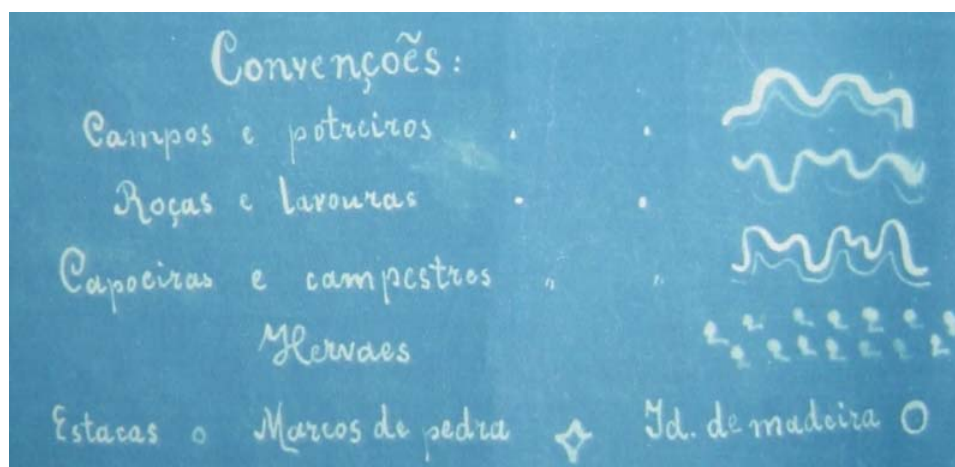 Convenções:
Campos e potreiros . .
Roças e lavouras . .
Capoeiras e campestres " "
Hervaes
Estacas Marcos de pedra Id. de madeira